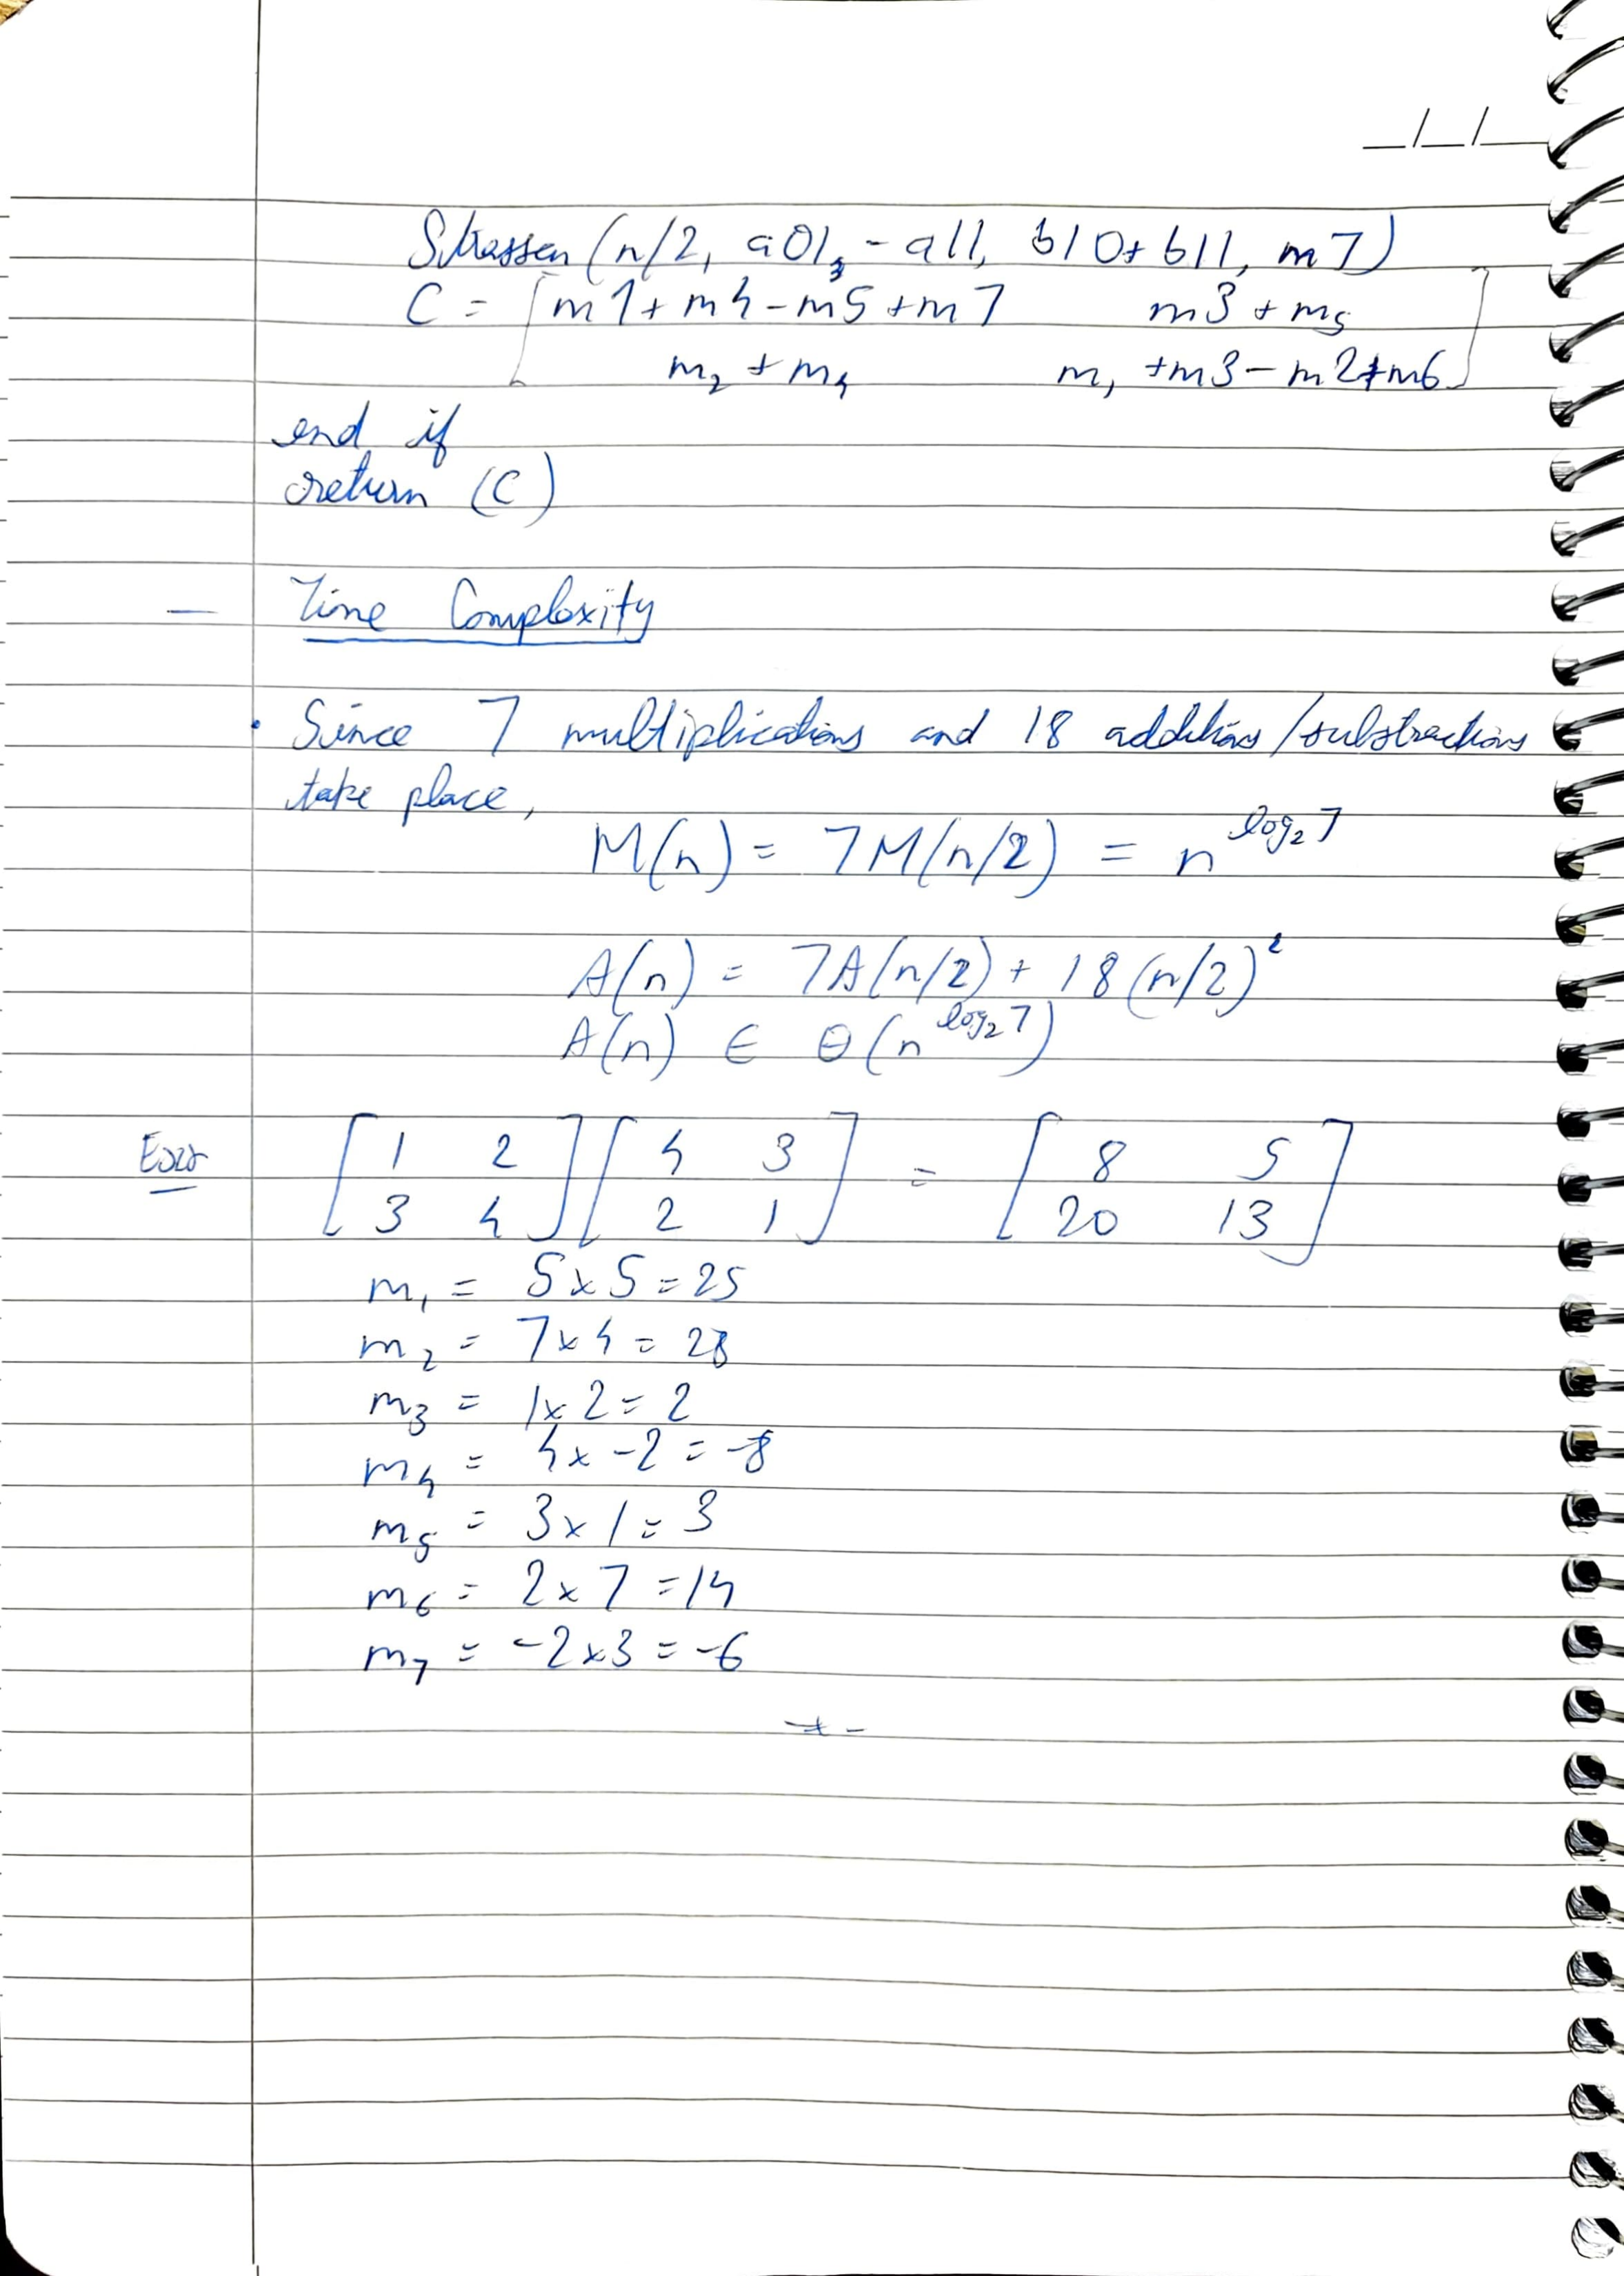 __/__/__
Strassen (n/2, a01 - a11, b10 + b11, m7)
C = [ m1 + m4 - m5 + m7 m3 + m5
m2 + m4 m1 + m3 - m2 + m6 ]
end if
return (C)
— Time Complexity
• Since 7 multiplications and 18 additions/substractions
take place,
M(n) = 7M(n/2) = n^log₂7
A(n) = 7A(n/2) + 18(n/2)²
A(n) ∈ Θ(n^log₂7)
[ 1 2 ] [ 4 3 ] = [ 8 5 ]
[ 3 4 ] [ 2 1 ] [ 20 13 ]
m₁ = 5 x 5 = 25
m₂ = 7 x 4 = 28
m₃ = 1 x 2 = 2
m₄ = 4 x -2 = -8
m₅ = 3 x 1 = 3
m₆ = 2 x 7 = 14
m₇ = -2 x 3 = -6